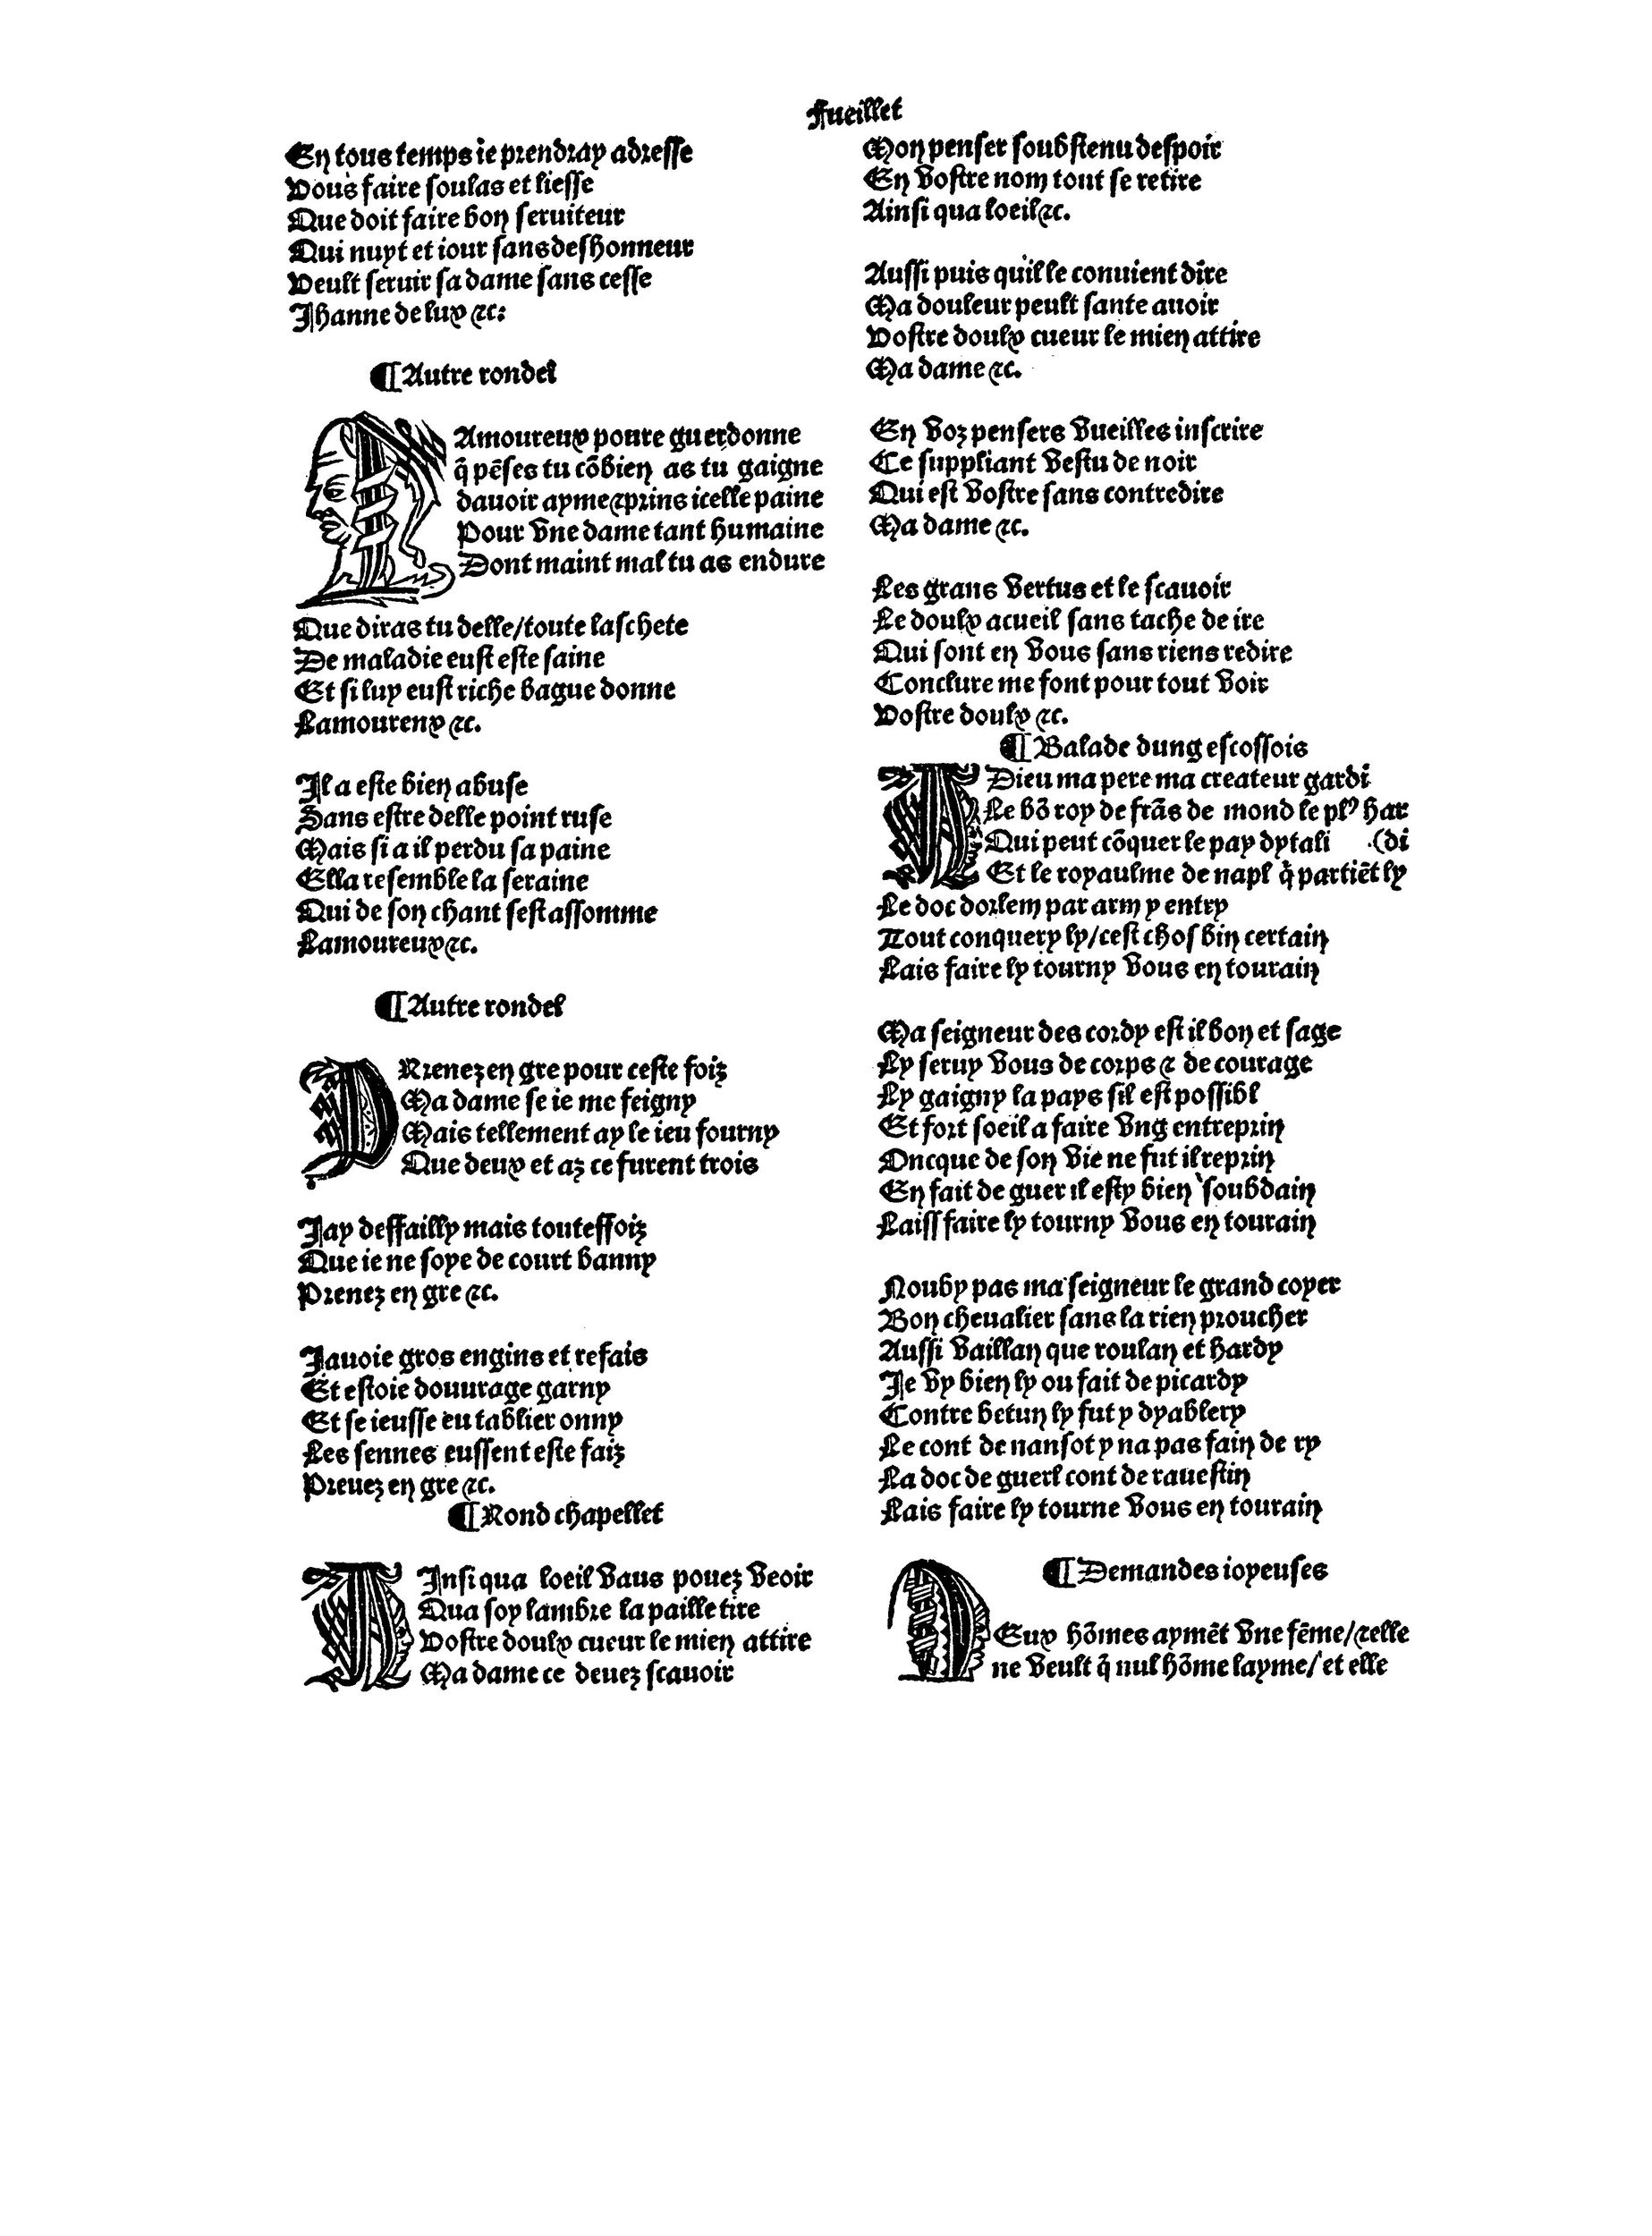 Fueillet
En tous temps ie prendray adresse
Vous faire soulas et liesse
Que doit faire bon seruiteur
Qui nuyt et iour sans deshonneur
Veult seruir sa dame sans cesse
Jhanne de lux ⁊c:
¶Autre rondel
LAmoureux poure guerdonne
q̃ pẽses tu cõbien as tu gaigne
dauoir ayme⁊prins icelle paine
Pour vne dame tant humaine
Dont maint mal tu as endure
Que diras tu delle/toute laschete
De maladie eust este saine
Et si luy eust riche bague donne
Lamourenx ⁊c.
Il a este bien abuse
Sans estre delle point ruse
Mais si a il perdu sa paine
Ella resemble la seraine
Qui de son chant sest assomme
Lamoureux⁊c.
¶Autre rondel
PRenez en gre pour ceste foiz
Ma dame se ie me feigny
Mais tellement ay le ieu fourny
Que deux et az ce furent trois
Jay deffailly mais touteffoiz
Que ie ne soye de court banny
Prenez en gre ⁊c.
Jauoie gros engins et refais
Et estoie douurage garny
Et se ieusse eu tablier onny
Les sennes eussent este faiz
Preuez en gre ⁊c.
¶Rond chapellet
AInsi qua loeil vaus pouez veoir
Qua soy lambre la paille tire
Vostre doulx cueur le mien attire
Ma dame ce deuez scauoir
Mon penser soubstenu despoir
En vostre nom tout se retire
Ainsi qua loeil⁊c.
Aussi puis quil le conuient dire
Ma douleur peult sante auoir
Vostre doulx cueur le mien attire
Ma dame ⁊c.
En voz pensers vueilles inscrire
Ce suppliant vestu de noir
Qui est vostre sans contredire
Ma dame ⁊c.
Les grans vertus et le scauoir
Le doulx acueil sans tache de ire
Qui sont en vous sans riens redire
Conclure me font pour tout voir
Vostre doulx ⁊c.
¶Balade dung escossois
A Dieu ma pere ma createur gardi
Le bõ roy de frãs de mond le plꝰ har
Qui peut cõquer le pay dytali .(di
Et le royaulme de napl q̃ partiẽt ly
Le doc dorlem par arm y entry
Tout conquery ly/cest chos bin certain
Lais faire ly tourny vous en tourain
Ma seigneur des cordy est il bon et sage
Ly seruy vous de corps ⁊ de courage
Ly gaigny la pays sil est possibl
Et fort soeil a faire vng entreprin
Oncque de son vie ne fut il reprin
En fait de guer il esty bien soubdain
Laiss faire ly tourny vous en tourain
Nouby pas ma seigneur le grand coyer
Bon cheualier sans la rien proucher
Aussi vaillan que roulan et hardy
Je vy bien ly ou fait de picardy
Contre betun ly fut y dyablery
Le cont de nansot y na pas fain de ry
La doc de guerl cont de rauestin
Lais faire ly tourne vous en tourain
¶Demandes ioyeuses
DEux hõmes aymẽt vne fẽme/⁊elle
ne veult q̃ nul hõme layme/et elle